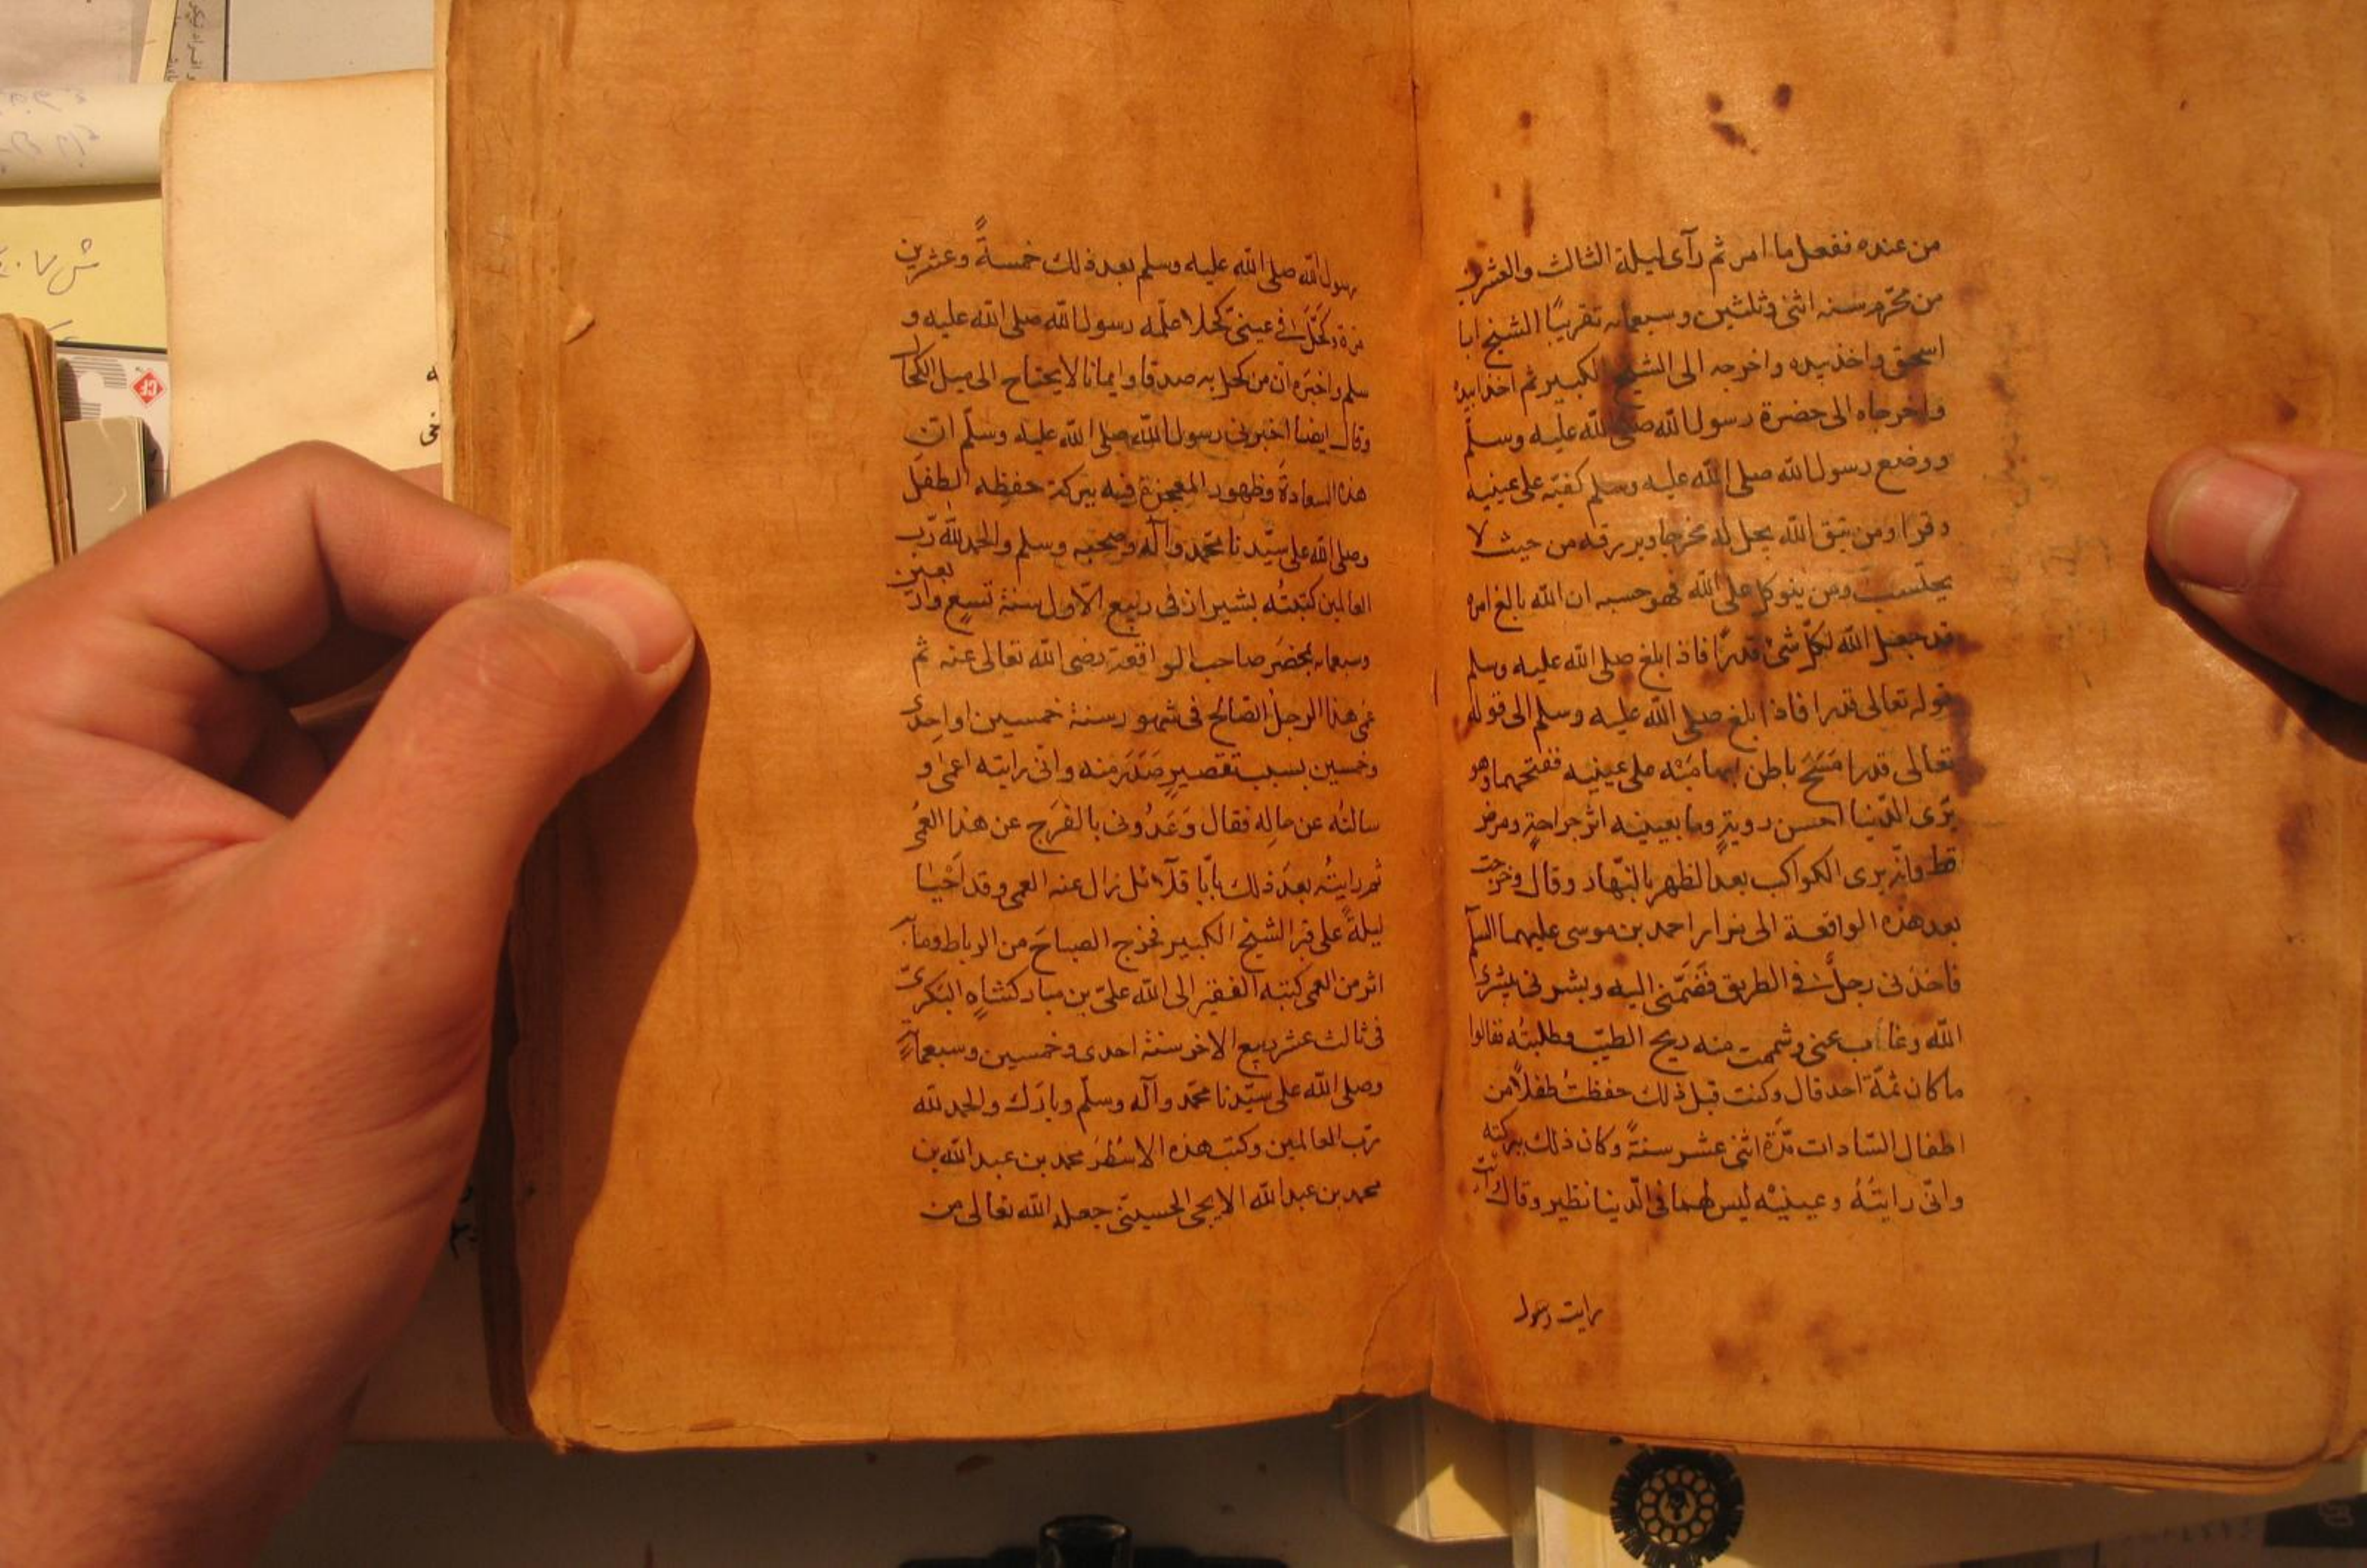 من عنده ففعل ما امر ثم رآى ليلة الثالث والعشرين
من محرم سنه اثنى وثلثين وسبعمايه تقريبًا الشيخ ابا
اسحق واخذ بيده واخرجه الى الشيخ الكبير ثم اخذا بيده
واخرجاه الى حضرة رسول الله صلى الله عليه وسلّم
ووضع رسول الله صلى الله عليه وسلم كفيّه على عينيه
وقرا ومن يتق الله يجعل له مخرجا ويرزقه من حيث لا
يحتسب ومن يتوكل على الله فهو حسبه ان الله بالغ امره
قد جعل الله لكلّ شئ قدرًا فاذا بلغ صلى الله عليه وسلم
قوله تعالى قدرا فاذا بلغ صلى الله عليه وسلم الى قوله
تعالى قدرا مَسَحَ باطن ابهاميْه على عينيه ففتحهما وهو
يَرى الدّنيا احسن رويةٍ وما بعينيه اثر جراحةٍ ومرض
قط وانّه يرى الكواكب بعد الظهر بالنّهار وقال وخرجت
بعد هذه الواقعة الى مزار احمد بن موسى عليهما السلم
فاخذنى رجلٌ فى الطريق فضَمّنى اليه وبشرنى بشرى
الله وغاب عنى وشممت منه ريح الطيّب وطلبتُه فقالوا
ما كان ثمّة احد قال وكنت قبل ذلك حفظتُ طفلاً من
اطفال السّادات مُدّة اثنى عشر سنةً وكان ذلك ببركته
وانّى رايتُهُ وعينيْه ليس لهما فى الدّنيا نظير وقال
رايت رسول
رسول الله صلى الله عليه وسلم بعد ذلك خمسةً وعشرين
مرة وكَحَّلَ فى عينىّ كحلا علّمه رسول الله صلى الله عليه و
سلم واخبره انّ من كحل به صدقا وايمانا لا يحتاج الى ميل الكحال
وقال ايضا اخبرنى رسول الله صلى الله عليه وسلّم انّ
هذه السعادةَ وظهور المعجزة فيه ببركة حفظِه الطفل
وصلى الله على سيّدنا محمّد وآله وصحبه وسلم والحمد لله ربّ
العالمين كتبتُه بشيراز فى ربيع الاّول سنة تسعٍ واربعين
وسبعمايه بمحضَر صاحب الواقعة رضى الله تعالى عنه ثم
عَمِىَ هذا الرجل الصّالح فى شهور سنة خمسين او احدى
وخمسين بسبب تقصيرٍ صَدَرَ منه وانّى رايته اعمى و
سالتُه عن حالِه فقال وَعَدُونى بالفَرَج عن هذا العمى
ثم رايتُه بعدَ ذلك بايّا قلآئل زال عنه العمى وقد اَحْيىٰ
ليلةً على قبر الشيخ الكبير فخرج الصباحَ من الرباط وما به
اثر من العمى كتبه الفقير الى الله علىّ بن مباركشاهِ البكرىّ
فى ثالث عشر ربيع الاخر سنة احدى وخمسين وسبعمايةٍ
وصلى الله على سيّدنا محمّد وآله وسلّم وبارَك والحمد لله
ربّ العالمين وكتب هذه الاسْطُرَ محمد بن عبد الله بن
محمد بن عبد الله الايجى الحسينىّ جعله الله تعالى من